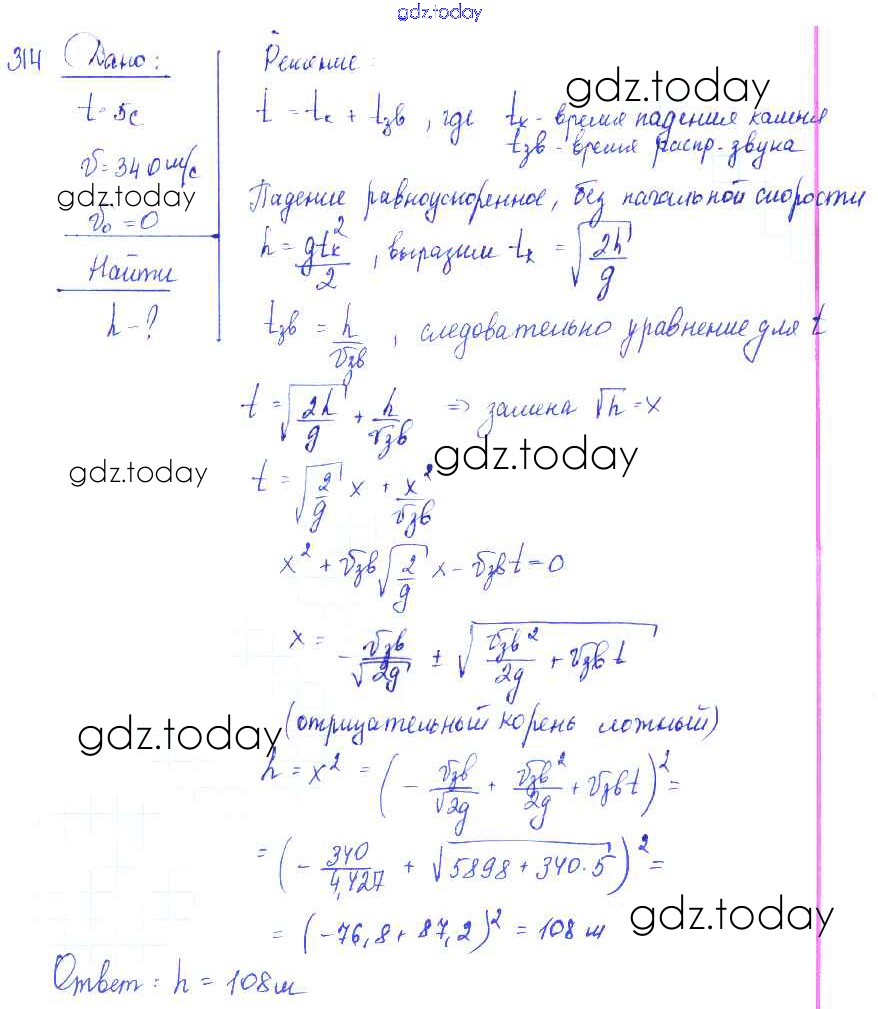 gdz.today
314 Дано:
t = 5с
v = 340 м/с
gdz.today
v₀ = 0
Найти
h - ?
Решение:
gdz.today
t = tк + tзв, где tк - время падения камня
tзв - время распр. звука
Падение равноускоренное, без начальной скорости
h = gtк²/2, выразим tк = √(2h/g)
tзв = h/vзв, следовательно уравнение для t
t = √(2h/g) + h/vзв => замена √h = x
gdz.today
gdz.today
t = √(2/g) x + x²/vзв
x² + vзв √(2/g) x - vзв t = 0
x = - vзв/√(2g) ± √(vзв²/2g + vзв t)
gdz.today
(отрицательный корень ложный)
h = x² = (- vзв/√2g + vзв²/2g + vзв t)² =
= (- 340/4,427 + √(5898 + 340·5))² =
= (-76,8 + 87,2)² = 108 м
gdz.today
Ответ: h = 108м